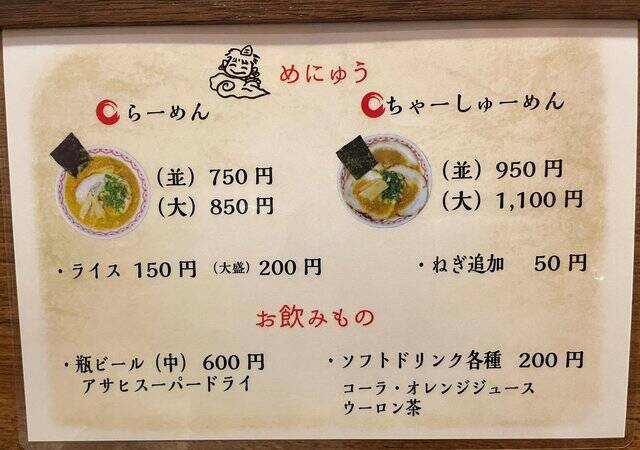 めにゅう
らーめん
(並) 750 円
(大) 850 円
ちゃーしゅーめん
(並) 950 円
(大) 1,100 円
・ライス 150 円 (大盛) 200 円
・ねぎ追加 50 円
お飲みもの
・瓶ビール (中) 600 円
アサヒスーパードライ
・ソフトドリンク各種 200 円
コーラ・オレンジジュース
ウーロン茶